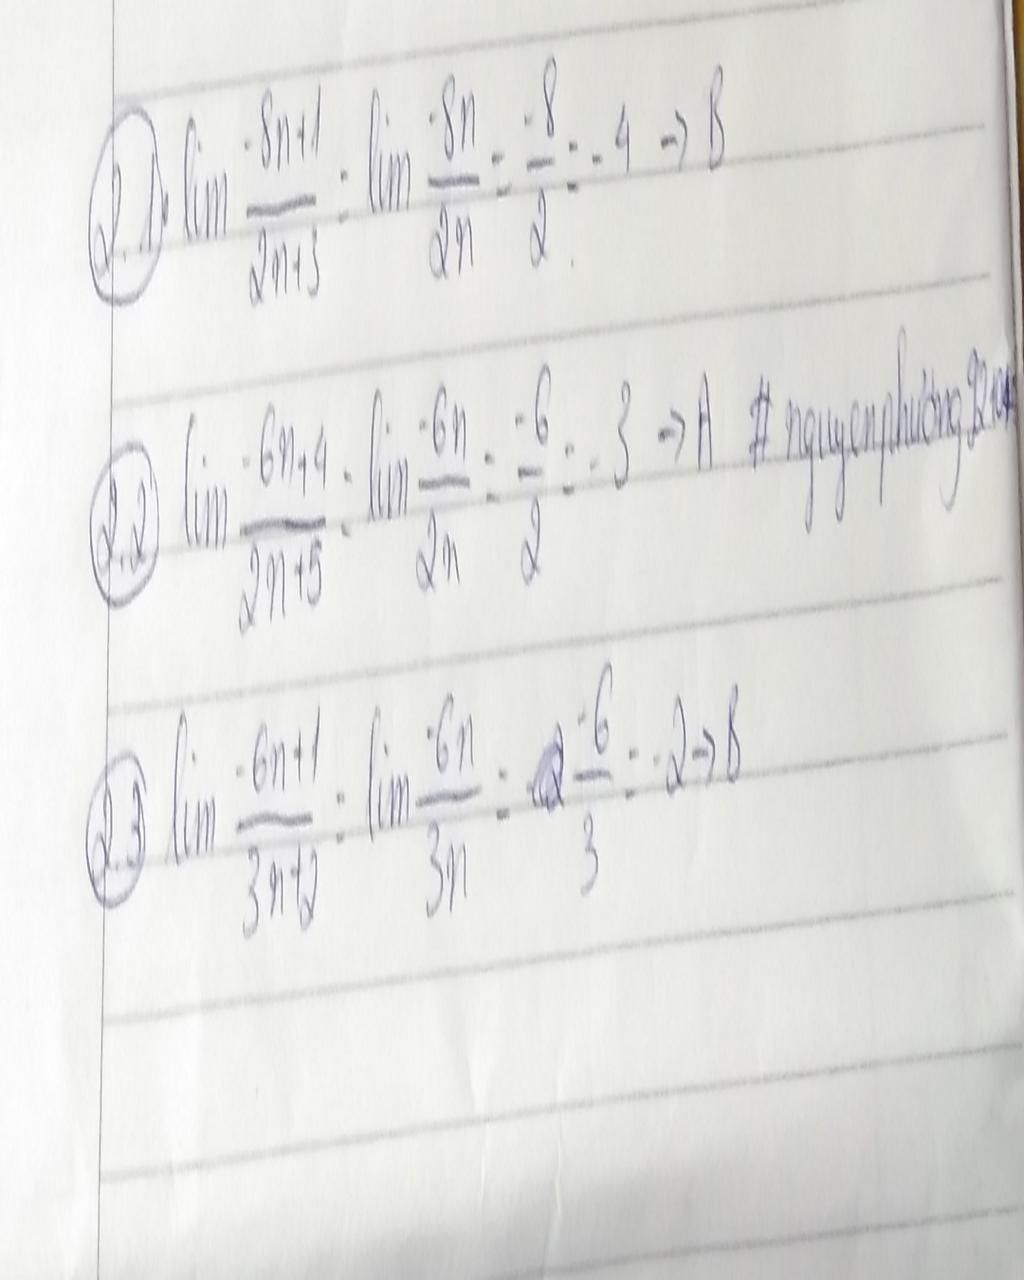 2.1. lim (-8n+1)/(2n+3) = lim (-8n)/(2n) = (-8)/2 = -4 → B
2.2 lim (-6n+4)/(2n+5) = lim (-6n)/(2n) = (-6)/2 = -3 → A
2.3 lim (-6n+1)/(3n+2) = lim (-6n)/(3n) = (-6)/3 = -2 → B